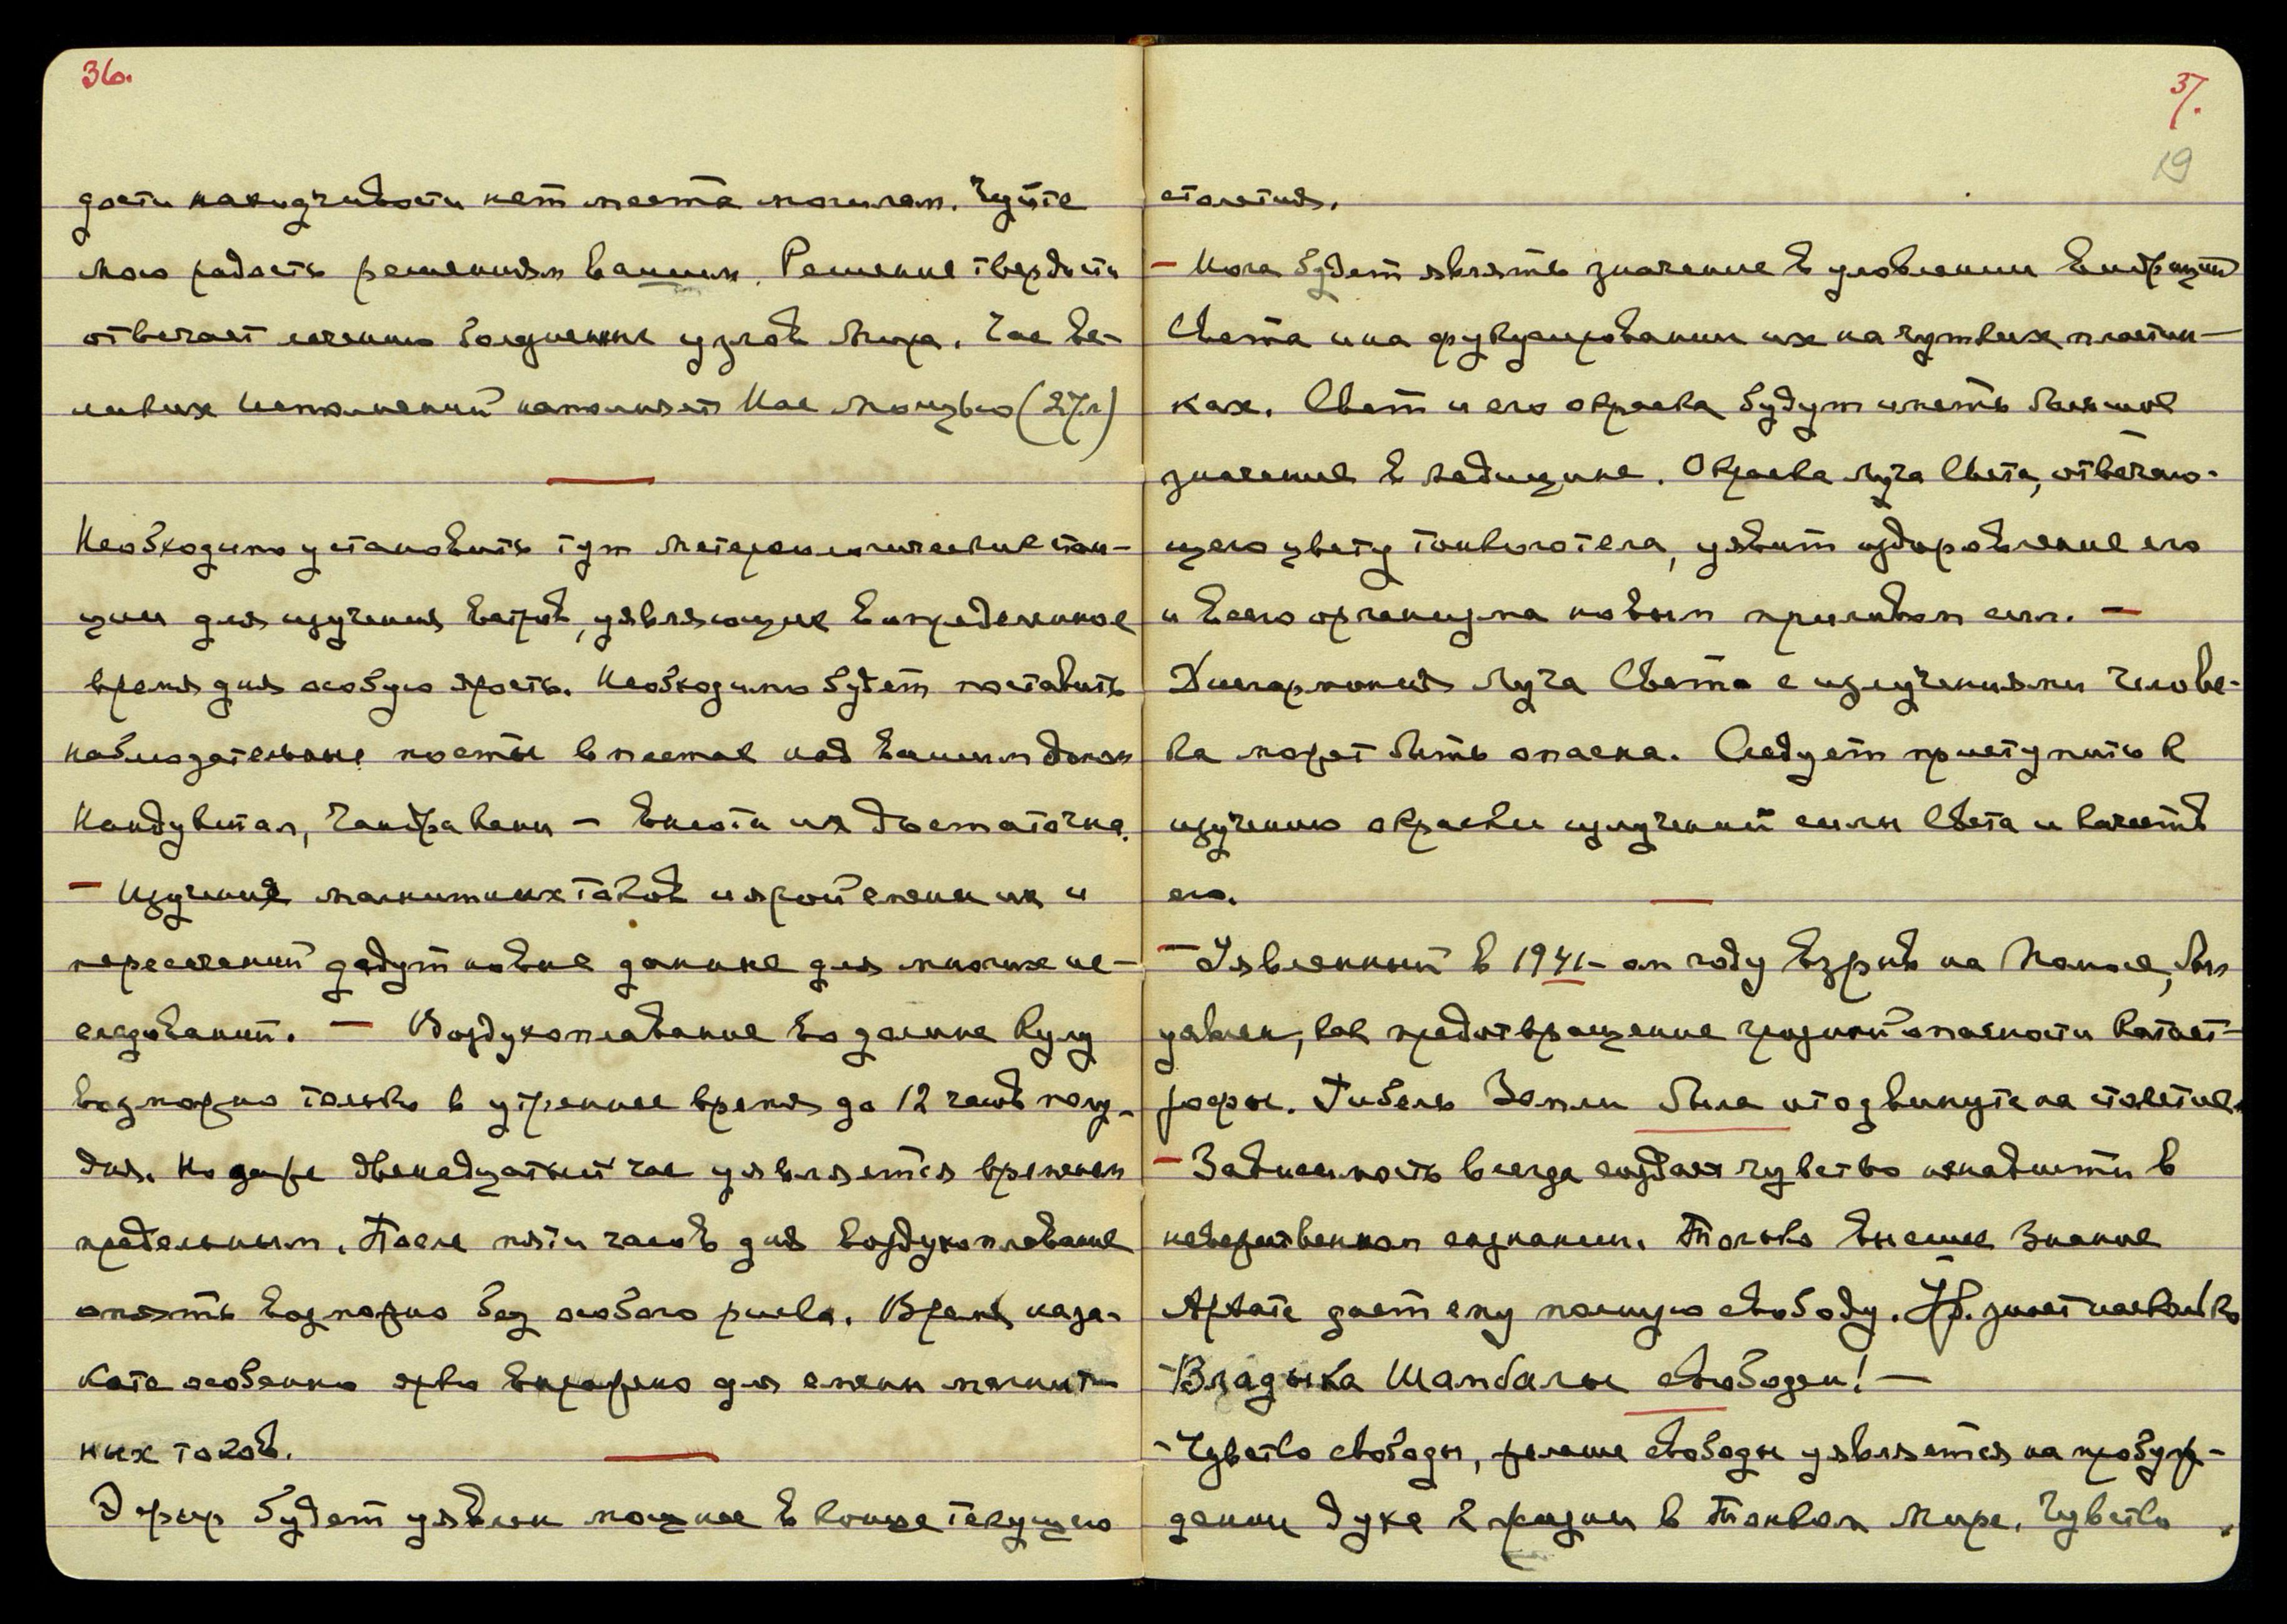 36.
дости находчивости нет места могилам. Чуйте
мою радость решениям вашим. Решение твердости
отвечает лечению болдненных узлов Мира. Час ве-
ликих исполнений наполняет Нас мощью (27л)
Необходимо установить тут метереологические стан-
ции для изучения ветров, уявляющие в определенное
время дня особую ярость. Необходимо будет поставить
наблюдательные посты в местах над вашим домом
, – вместе их достаточно.
– Изучение магнитных токов и яройсмены их и
пересечений дадут новые данные для многих ис-
следований. – Воздухоплавание во долине Кулу
возможно только в утреннее время до 12 часов полу-
дня. Но даже двенадцатый час уявляется временем
предельным. После пяти часов дня воздухоплавание
опять возможно без особого риска. Время наза-
ката особенно ярко выражено для смены магнит-
ных токов.
Эфир будет уявлен мощнее в конце текущего
37.
19
столетия.
– будет являть значение в уловлении вибраций
Света и на фукусировании их на чутких пластин-
ках. Свет и его окраска будут иметь большое
значение в медицине. Окраска луча Света, отвечаю-
щего цвету тонкого тела, уявит оздоровление его
и всего организма новым приливом сил. –
Дисгармония луча Света с излучениями челове-
ка может быть опасна. Следует приступить к
изучению окраски излучений силы Света и качеств
его.
– Уявленный в 1941-ом году взрыв на , был
уявлен, как предотвращение грозной опасности катаст-
рофы. Гибель Земли была отодвинута на столетие.
– Зависимость всегда создает чувство ненависти в
невежественном сознании. Только высшее Знание
Архата дает ему полную свободу. Ур. знает насколько
– Владыка Шамбалы свободен! –
– Чувство свободы, желание свободы уявляется на пробуж-
дении духа к жизни в Тонком Мире. Чувство